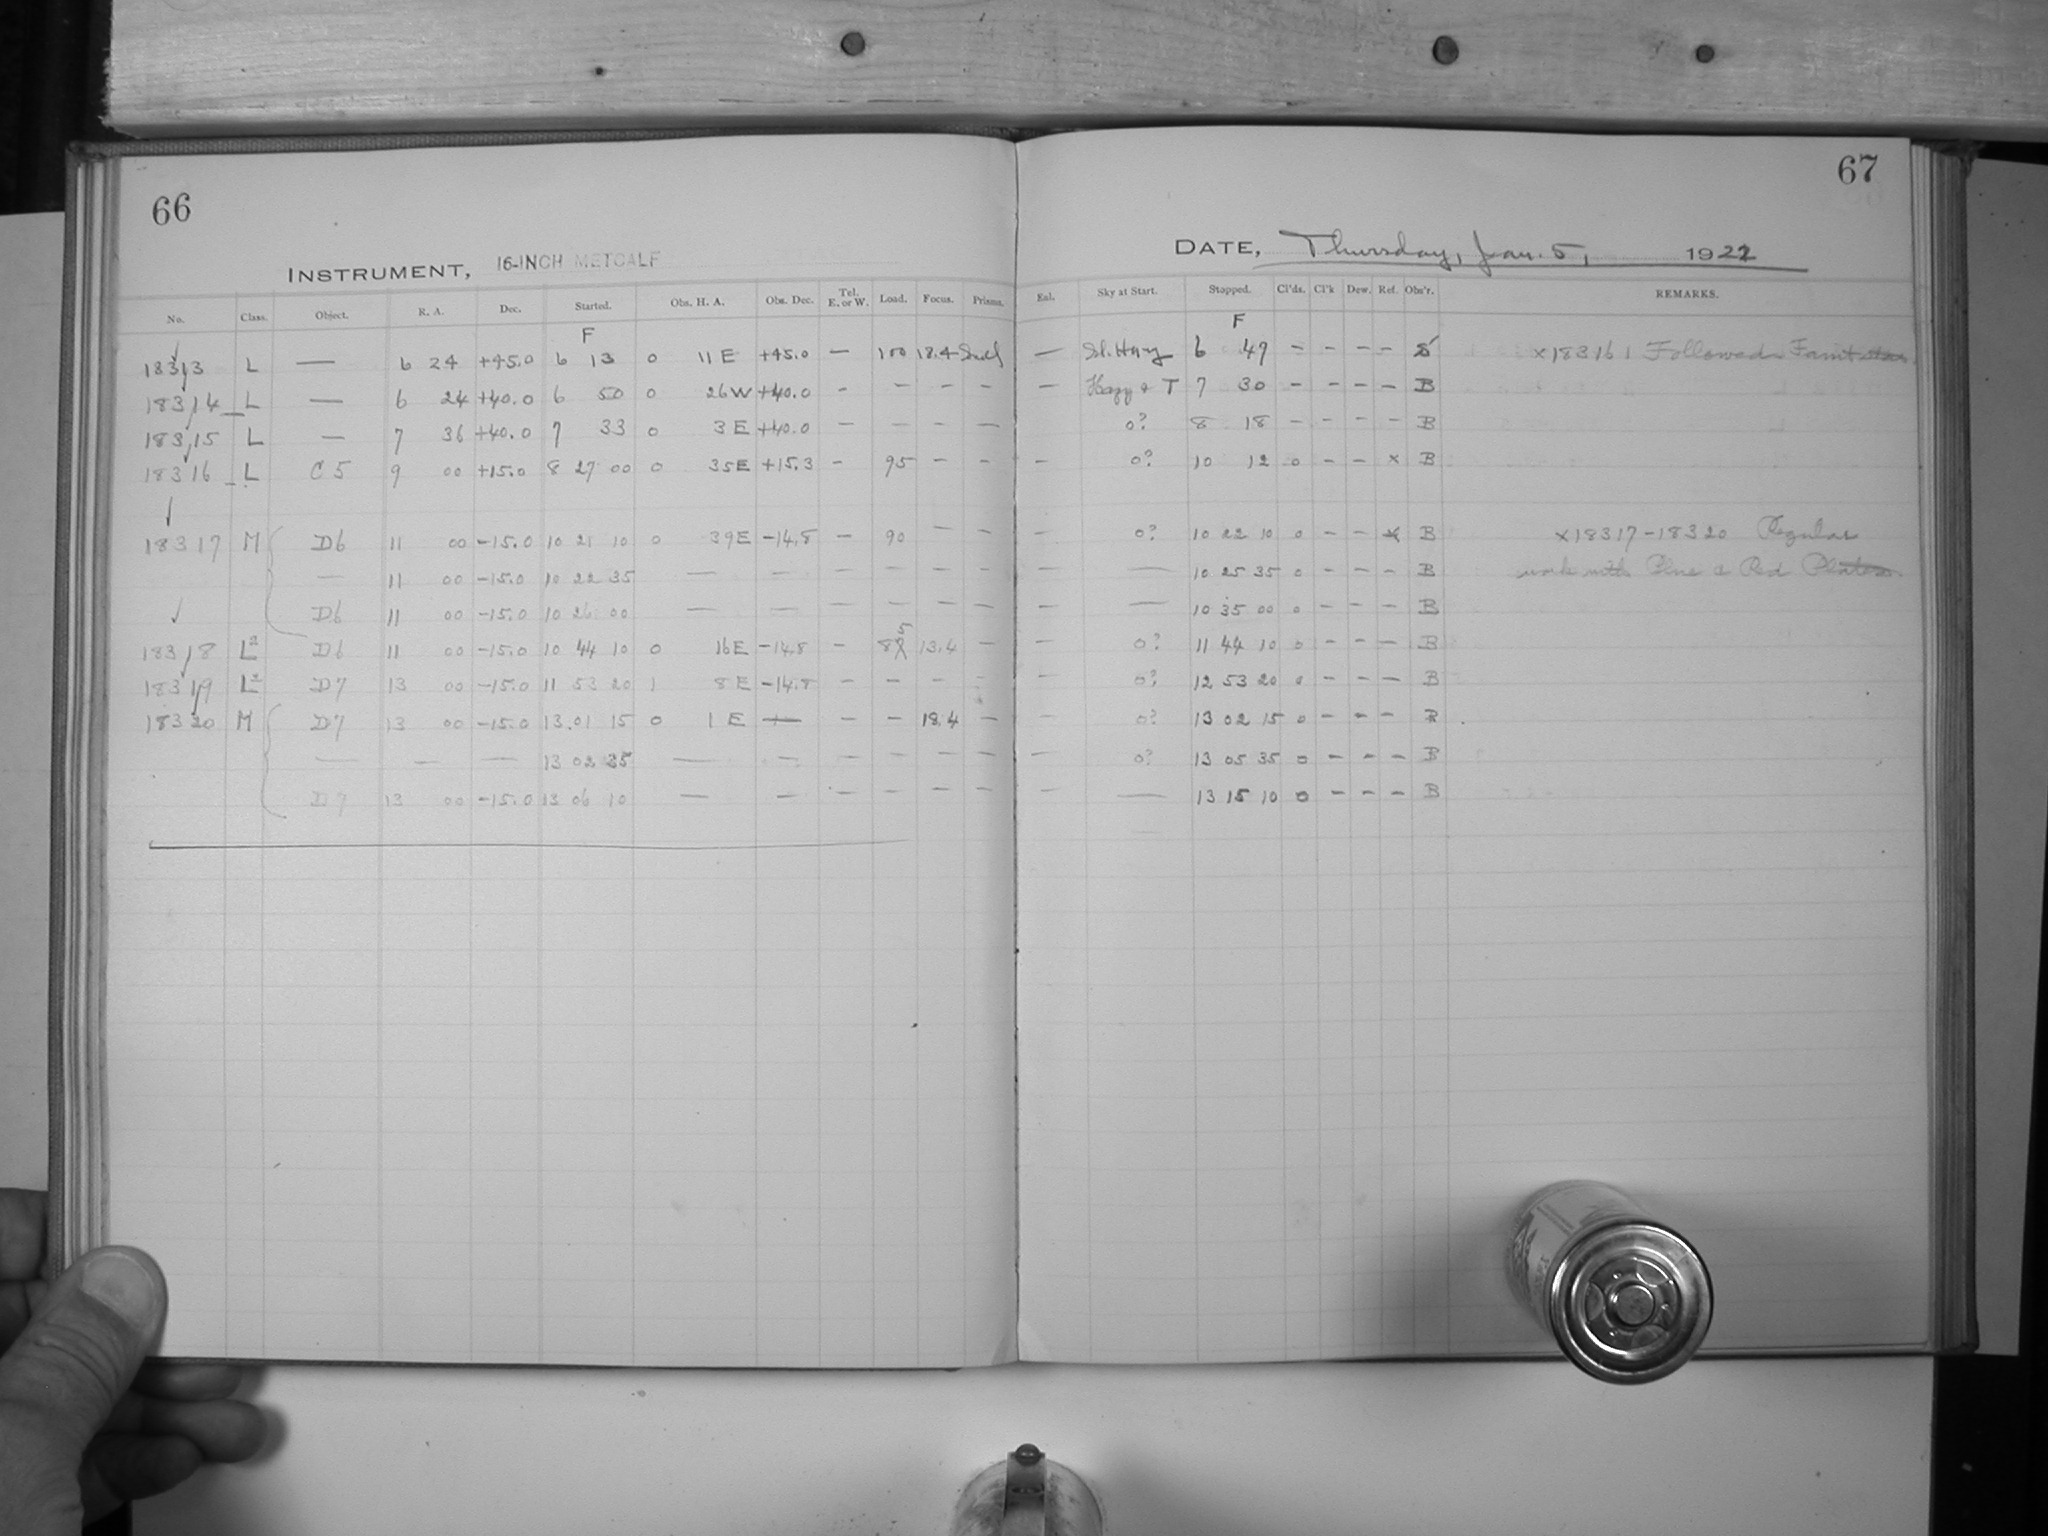 66
INSTRUMENT, 16-INCH METCALF
No. Class. Object. R. A. Dec. Started. Obs. H. A. Obs. Dec. Tel. E. or W. Load. Focus. Prisms.
F
18313 L — 6 24 +45.0 6 13 0 11 E +45.0 — 100 18.4
18314 L — 6 24 +40.0 6 50 0 26 W +40.0 - - - -
18315 L — 7 36 +40.0 7 33 0 3 E +40.0 - - - -
18316 L C 5 9 00 +15.0 8 27 00 0 35 E +15.3 - 95 - -
18317 M D6 11 00 -15.0 10 21 10 0 39 E -14.8 - 90 - -
— 11 00 -15.0 10 22 35 — — - - - -
D6 11 00 -15.0 10 26 00 — — - - - -
18318 L D6 11 00 -15.0 10 44 10 0 16 E -14.8 - 85 13.4 -
18319 L D7 13 00 -15.0 11 53 20 1 8 E -14.8 - - - -
18320 M D7 13 00 -15.0 13.01 15 0 1 E — - - 18.4 -
— — — 13 02 35 — — - - - -
D7 13 00 -15.0 13 06 10 — — - - - -
67
DATE, Thursday, Jan. 5, 1922
Sky at Start. Stopped. Cl'ds. Cl'k Dew. Ref. Obs'r. REMARKS.
F
— Sl. Hazy 6 49 - - - - S x18316 Followed Faint star
— Hazy & T 7 30 - - - - B
0? 8 18 - - - - B
- 0? 10 12 0 - - x B
- 0? 10 22 10 0 - - x B x18317-18320 Regular
- — 10 25 35 0 - - - B work with Blue & Red Plates.
- — 10 35 00 0 - - - B
- 0? 11 44 10 0 - - - B
- 0? 12 53 20 0 - - - B
- 0? 13 02 15 0 - - - B
- 0? 13 05 35 0 - - - B
- — 13 15 10 0 - - - B